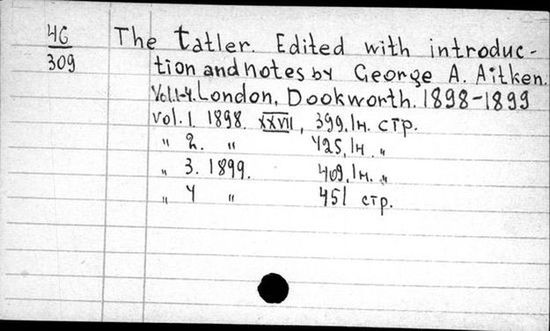 46
309
The tatler. Edited with introduc-
tion and notes by George A. Aitken.
Vol.1-4. London, Dookworth. 1898-1899
vol. 1. 1898. XXVII, 399, 1н. стр.
" 2. " 425, 1н. "
" 3. 1899. 409, 1н. "
" 4 " 451 стр.